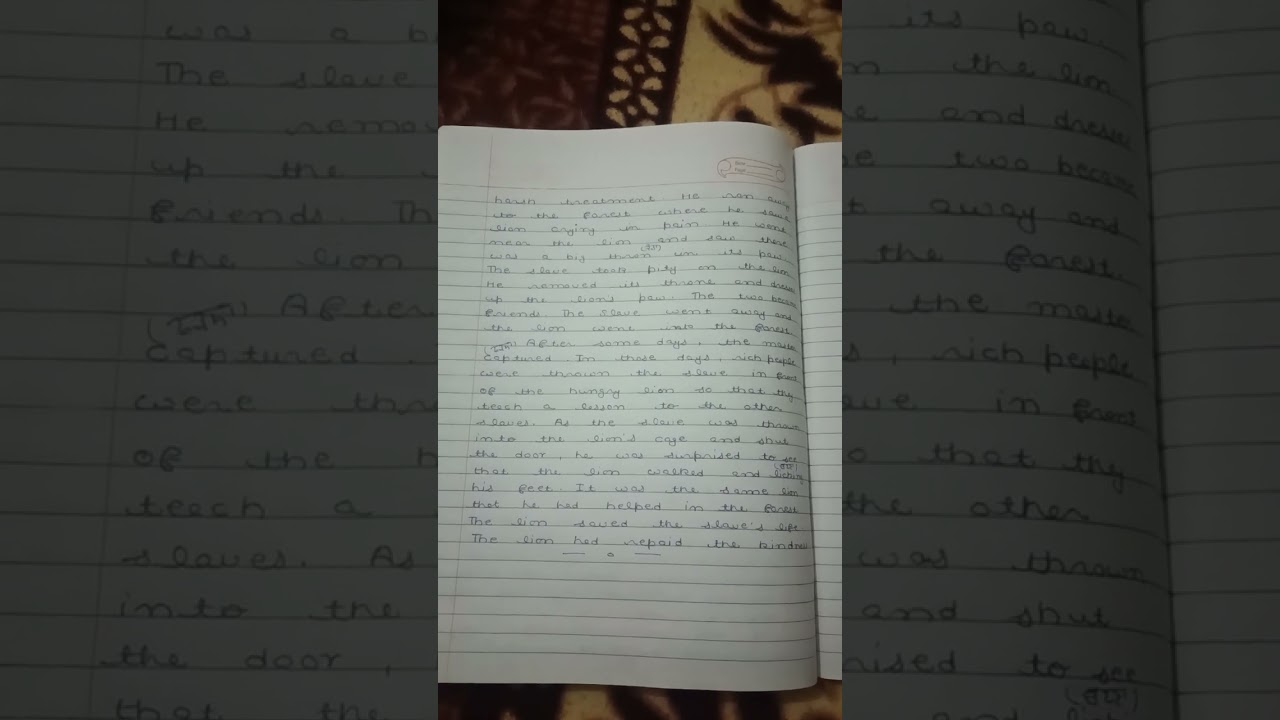 harsh treatment. He ran away
to the forest where he saw
lion crying in pain. He went
near the lion and saw there
was a big thron in its paw.
The slave took pity on the lion
He removed its throne and dresses
up the lion's paw. The two became
friends. The slave went away and
the lion went into the forest.
After some days, the master
captured. In those days, rich people
were thrown the slave in front
of the hungry lion so that thy
teach a lesson to the other
slaves. As the slave was thrown
into the lion's cage and shut
the door, he was surprised to see
that the lion walked and licking
his feet. It was the same lion
that he had helped in the forest
The lion saved the slave's life
The lion had repaid the kindness